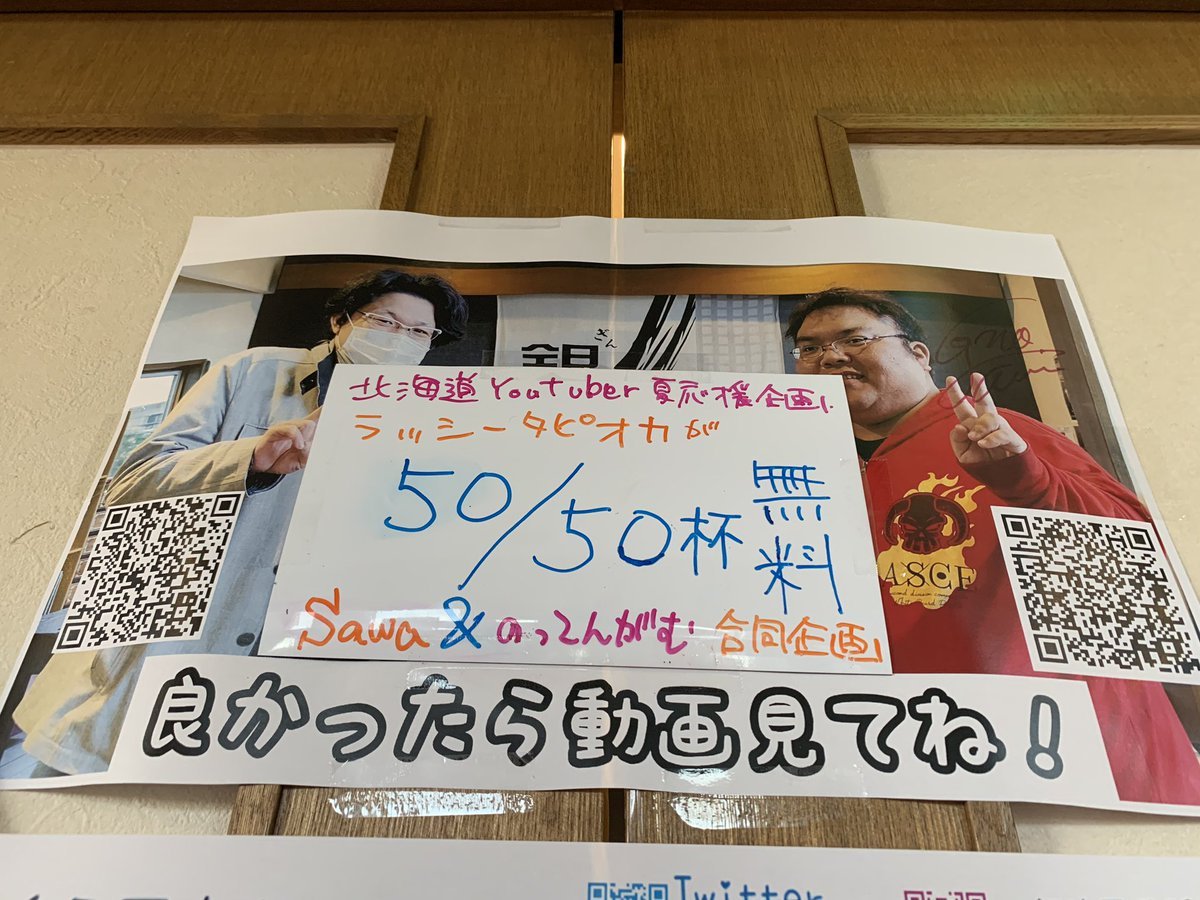 銀
ぎん
北海道Youtuber夏応援企画!
ラッシータピオカが
50/50杯
無料
Sawa&のってんがむ 合同企画!
ASCF
良かったら動画見てね!
Twitter